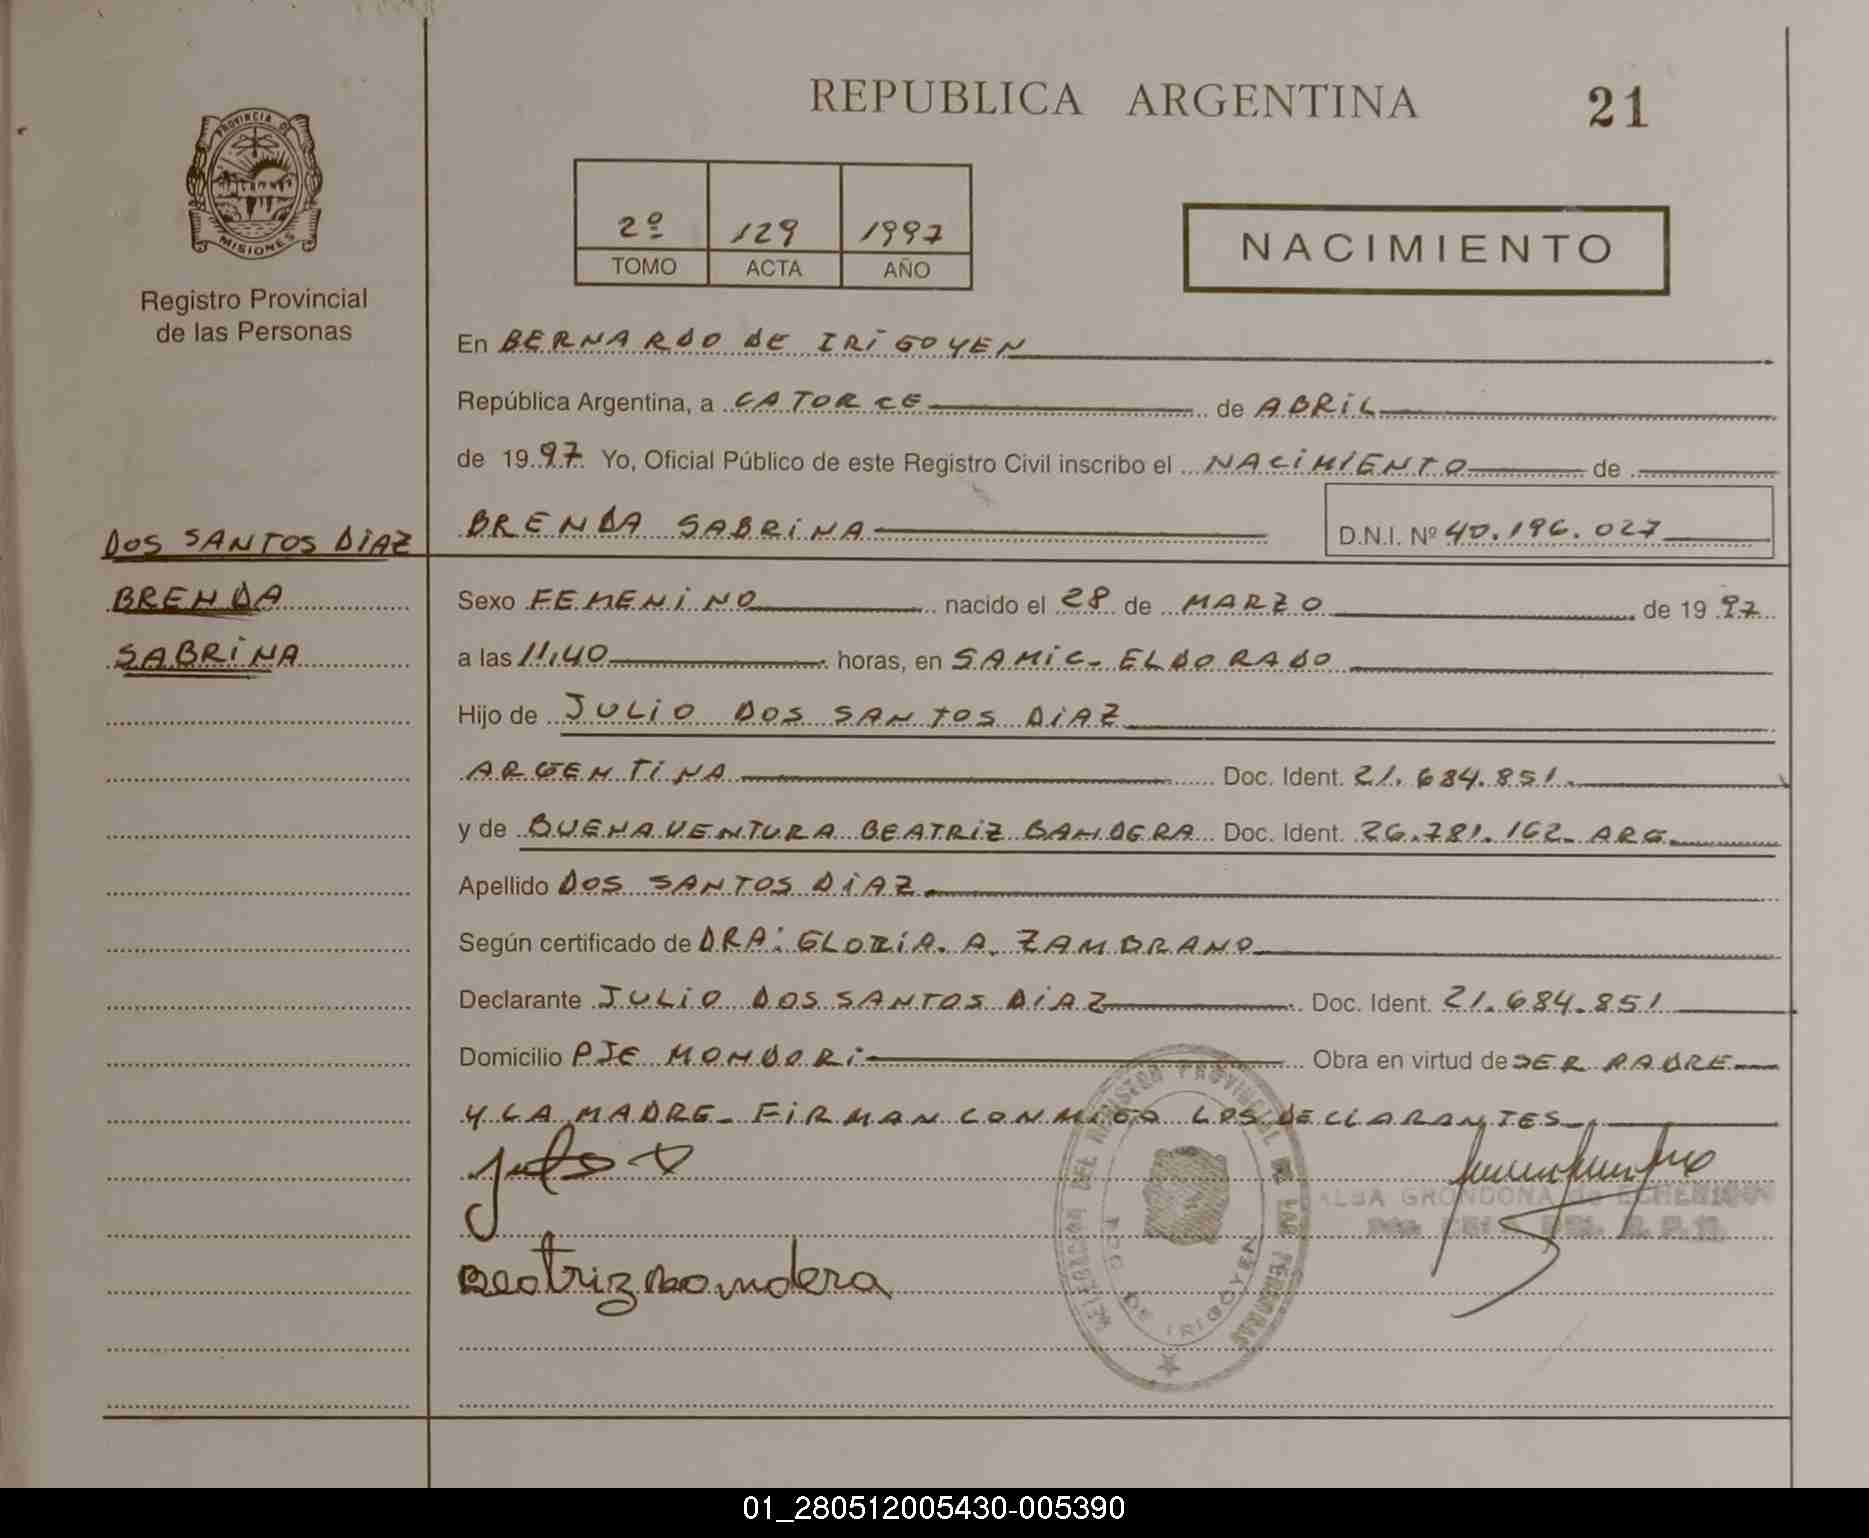 REPUBLICA ARGENTINA
21
PROVINCIA DE
MISIONES
Registro Provincial
de las Personas
2º 129 1997
TOMO ACTA AÑO
NACIMIENTO
En BERNARDO DE IRIGOYEN
República Argentina, a CATORCE de ABRIL
de 1997 Yo, Oficial Público de este Registro Civil inscribo el NACIMIENTO de
BRENDA SABRINA D.N.I. Nº 40.196.027
DOS SANTOS DIAZ
BRENDA
SABRINA
Sexo FEMENINO nacido el 28 de MARZO de 1997
a las 11,40 horas, en SAMIC- ELDORADO
Hijo de JULIO DOS SANTOS DIAZ
ARGENTINA Doc. Ident. 21.684.851.
y de BUENAVENTURA BEATRIZ BANDERA Doc. Ident. 26.781.162- ARG.
Apellido DOS SANTOS DIAZ
Según certificado de DRA: GLORIA. A. ZAMBRANO
Declarante JULIO DOS SANTOS DIAZ Doc. Ident. 21.684.851
Domicilio PJE MONDORI Obra en virtud de SER PADRE
Y LA MADRE- FIRMAN CONMIGO LOS DECLARANTES
Beatriz Bandera
DELEGACION DEL REGISTRO PROVINCIAL DE LAS PERSONAS
BDO DE IRIGOYEN
ALBA GRONDONA de
01_280512005430-005390